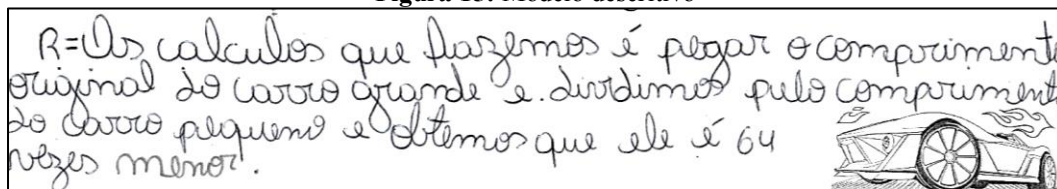 Figura 15: Modelo descritivo
R=Os calculos que fazemos é pegar o comprimento
original do carro grande e. dividimos pelo compriment
do carro pequeno e obtemos que ele é 64
vezes menor.